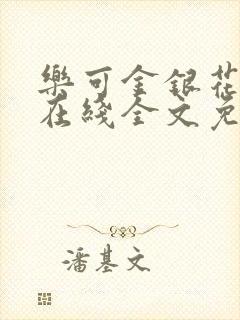 樂可金銀花
在綫全文免
潘基文